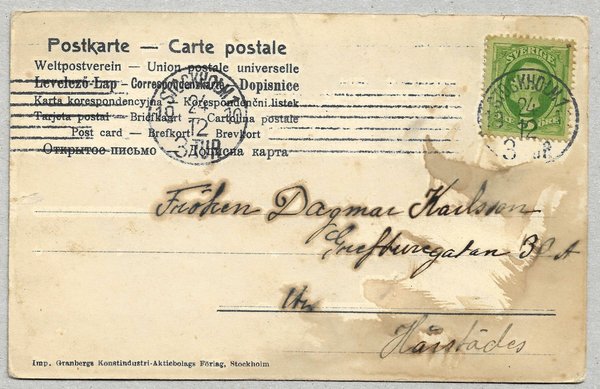 Postkarte — Carte postale
Weltpostverein — Union postale universelle
Levelező-Lap — Correspondenzkarte — Dopisnice
Karta korespondencyjna — Korespondenční listek
Tarjeta postal — Briefkaart — Cartolina postale
Post card — Brefkort — Brevkort
Открытое письмо — Дописна карта
STOCKHOLM 1
24
12
3 TUR
SVERIGE
STOCKHOLM 1
24
12
3 TUR
Fröken Dagmar Karlsson
Grefturegatan 32 A
Härstädes
Imp. Granbergs Konstindustri-Aktiebolags Förlag, Stockholm